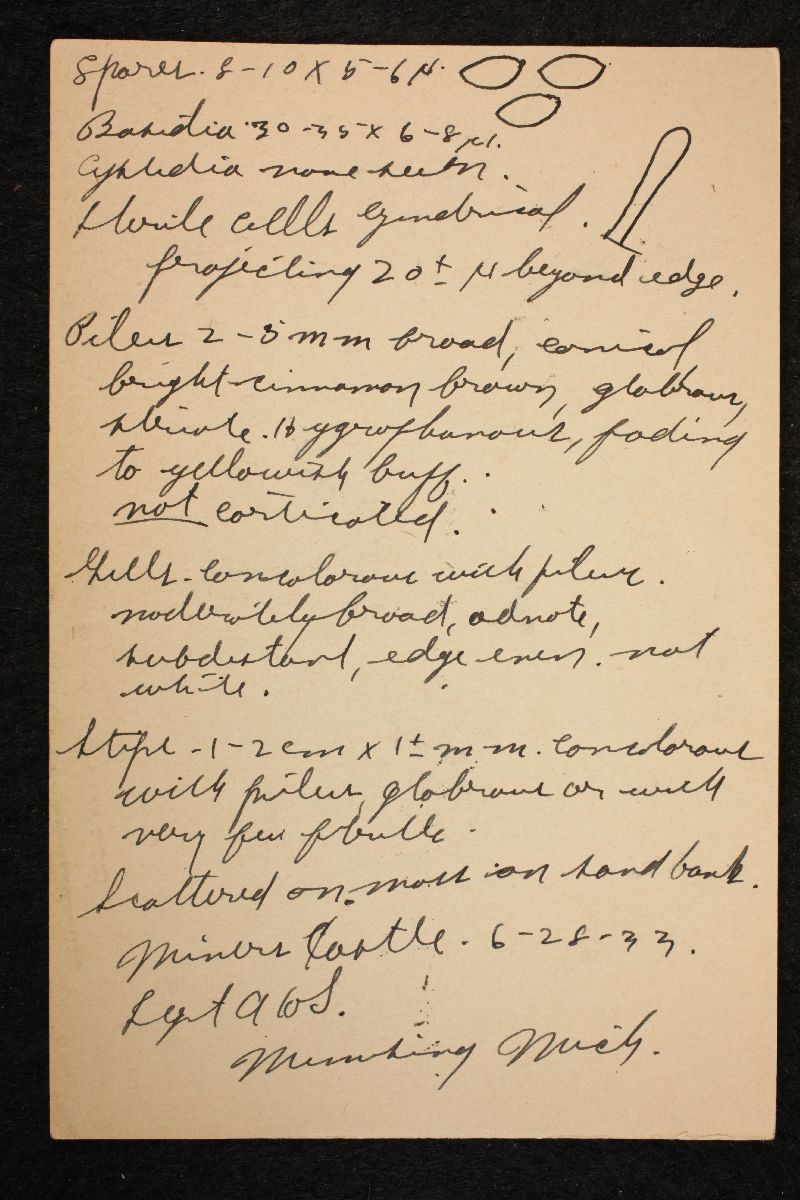 Spores. 8-10 X 5-6 µ.
Basidia. 30-35 x 6-8 µ.
Cystidia none seen.
Sterile cells cylindrical.
projecting 20± µ beyond edge.
Pileus 2-5 mm broad, conical
bright cinnamon brown, glabrous,
striate. Hygrophanous, fading
to yellowish buff.
not corticated.
Gills. Concolorous with pileus.
moderately broad, adnate,
subdistant, edge even. not
white.
Stipe - 1-2 cm x 1± mm. Concolorous
with pileus, glabrous or with
very few fibrills.
Scattered on moss on sand bank.
Miners Castle. 6-28-33.
Sept AHS.
Munising Mich.